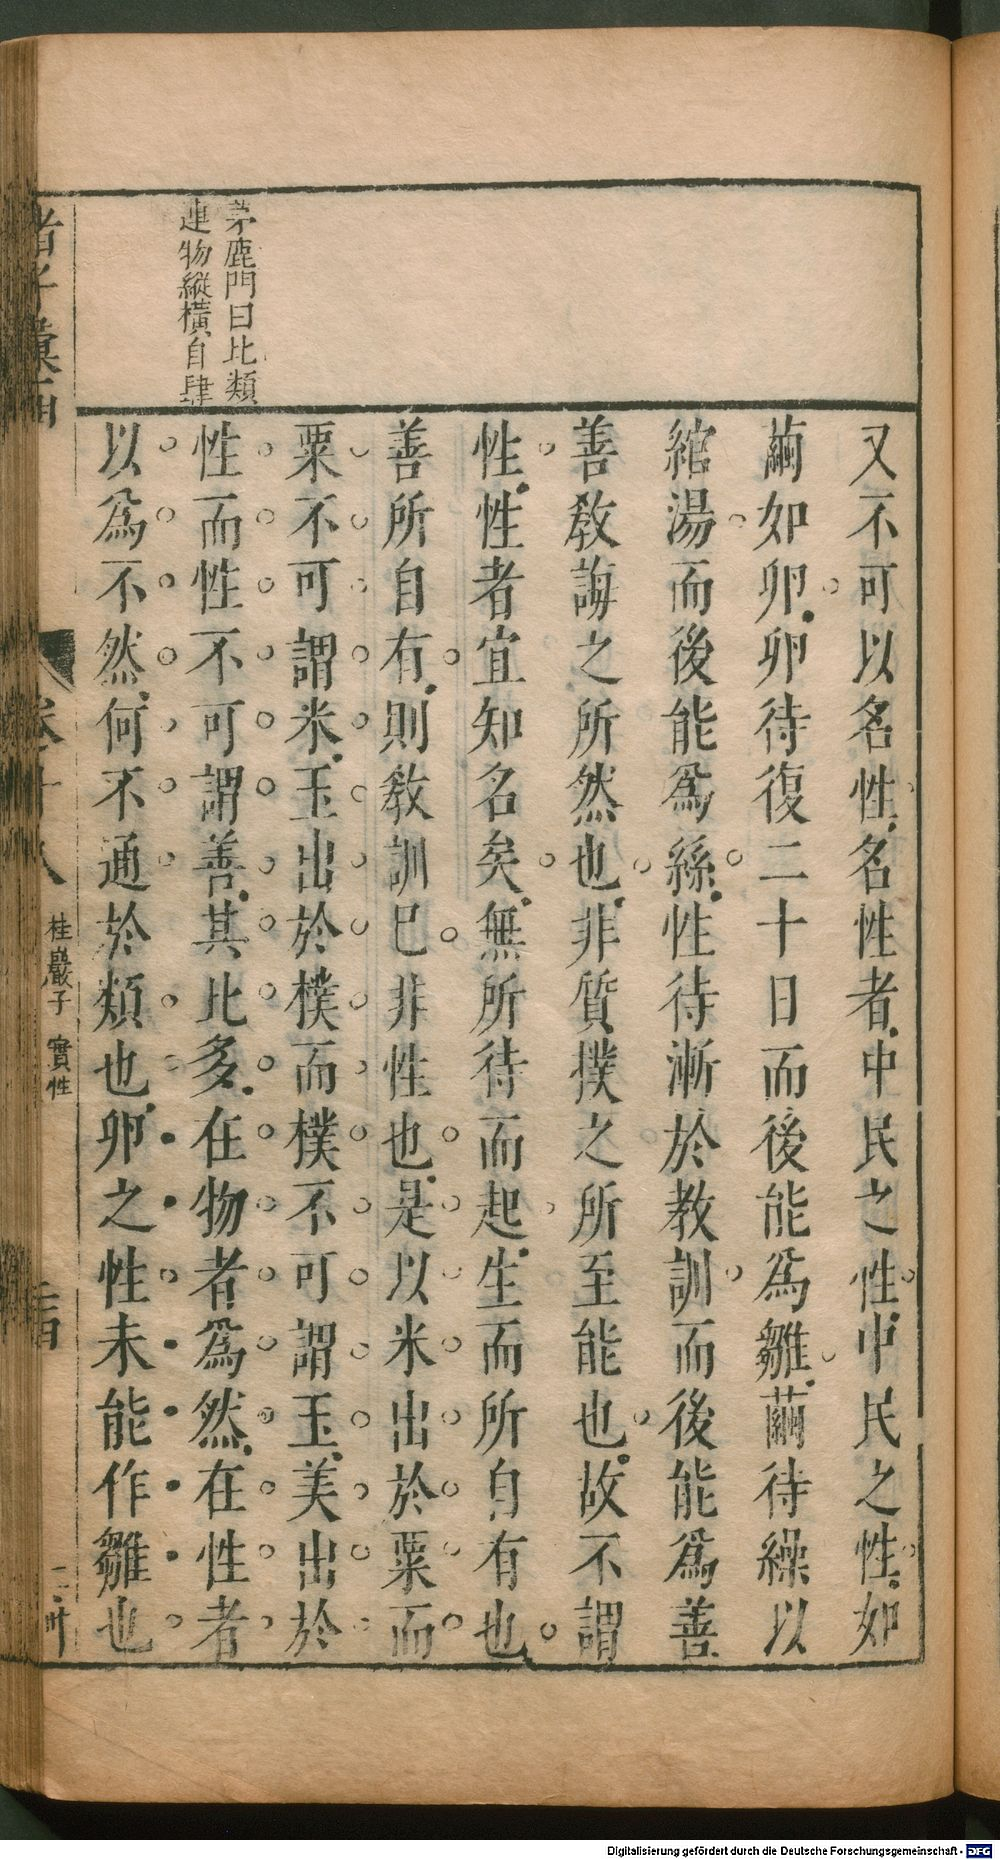 茅鹿門曰比類
連物縱橫自肆
又不可以名性名性者中民之性中民之性如
繭如卵卵待復二十日而後能為雛繭待繰以
綰湯而後能為絲性待漸於教訓而後能為善
善教誨之所然也非質撲之所至能也故不謂
性性者宜知名矣無所待而起生而所自有也
善所自有則教訓巳非性也是以米出於粟而
粟不可謂米玉出於樸而樸不可謂玉美出於
性而性不可謂善其比多在物者為然在性者
以為不然何不通於類也卵之性未能作雛也
諸子彙函
卷十八
桂巖子 實性
Digitalisierung gefördert durch die Deutsche Forschungsgemeinschaft - DFG